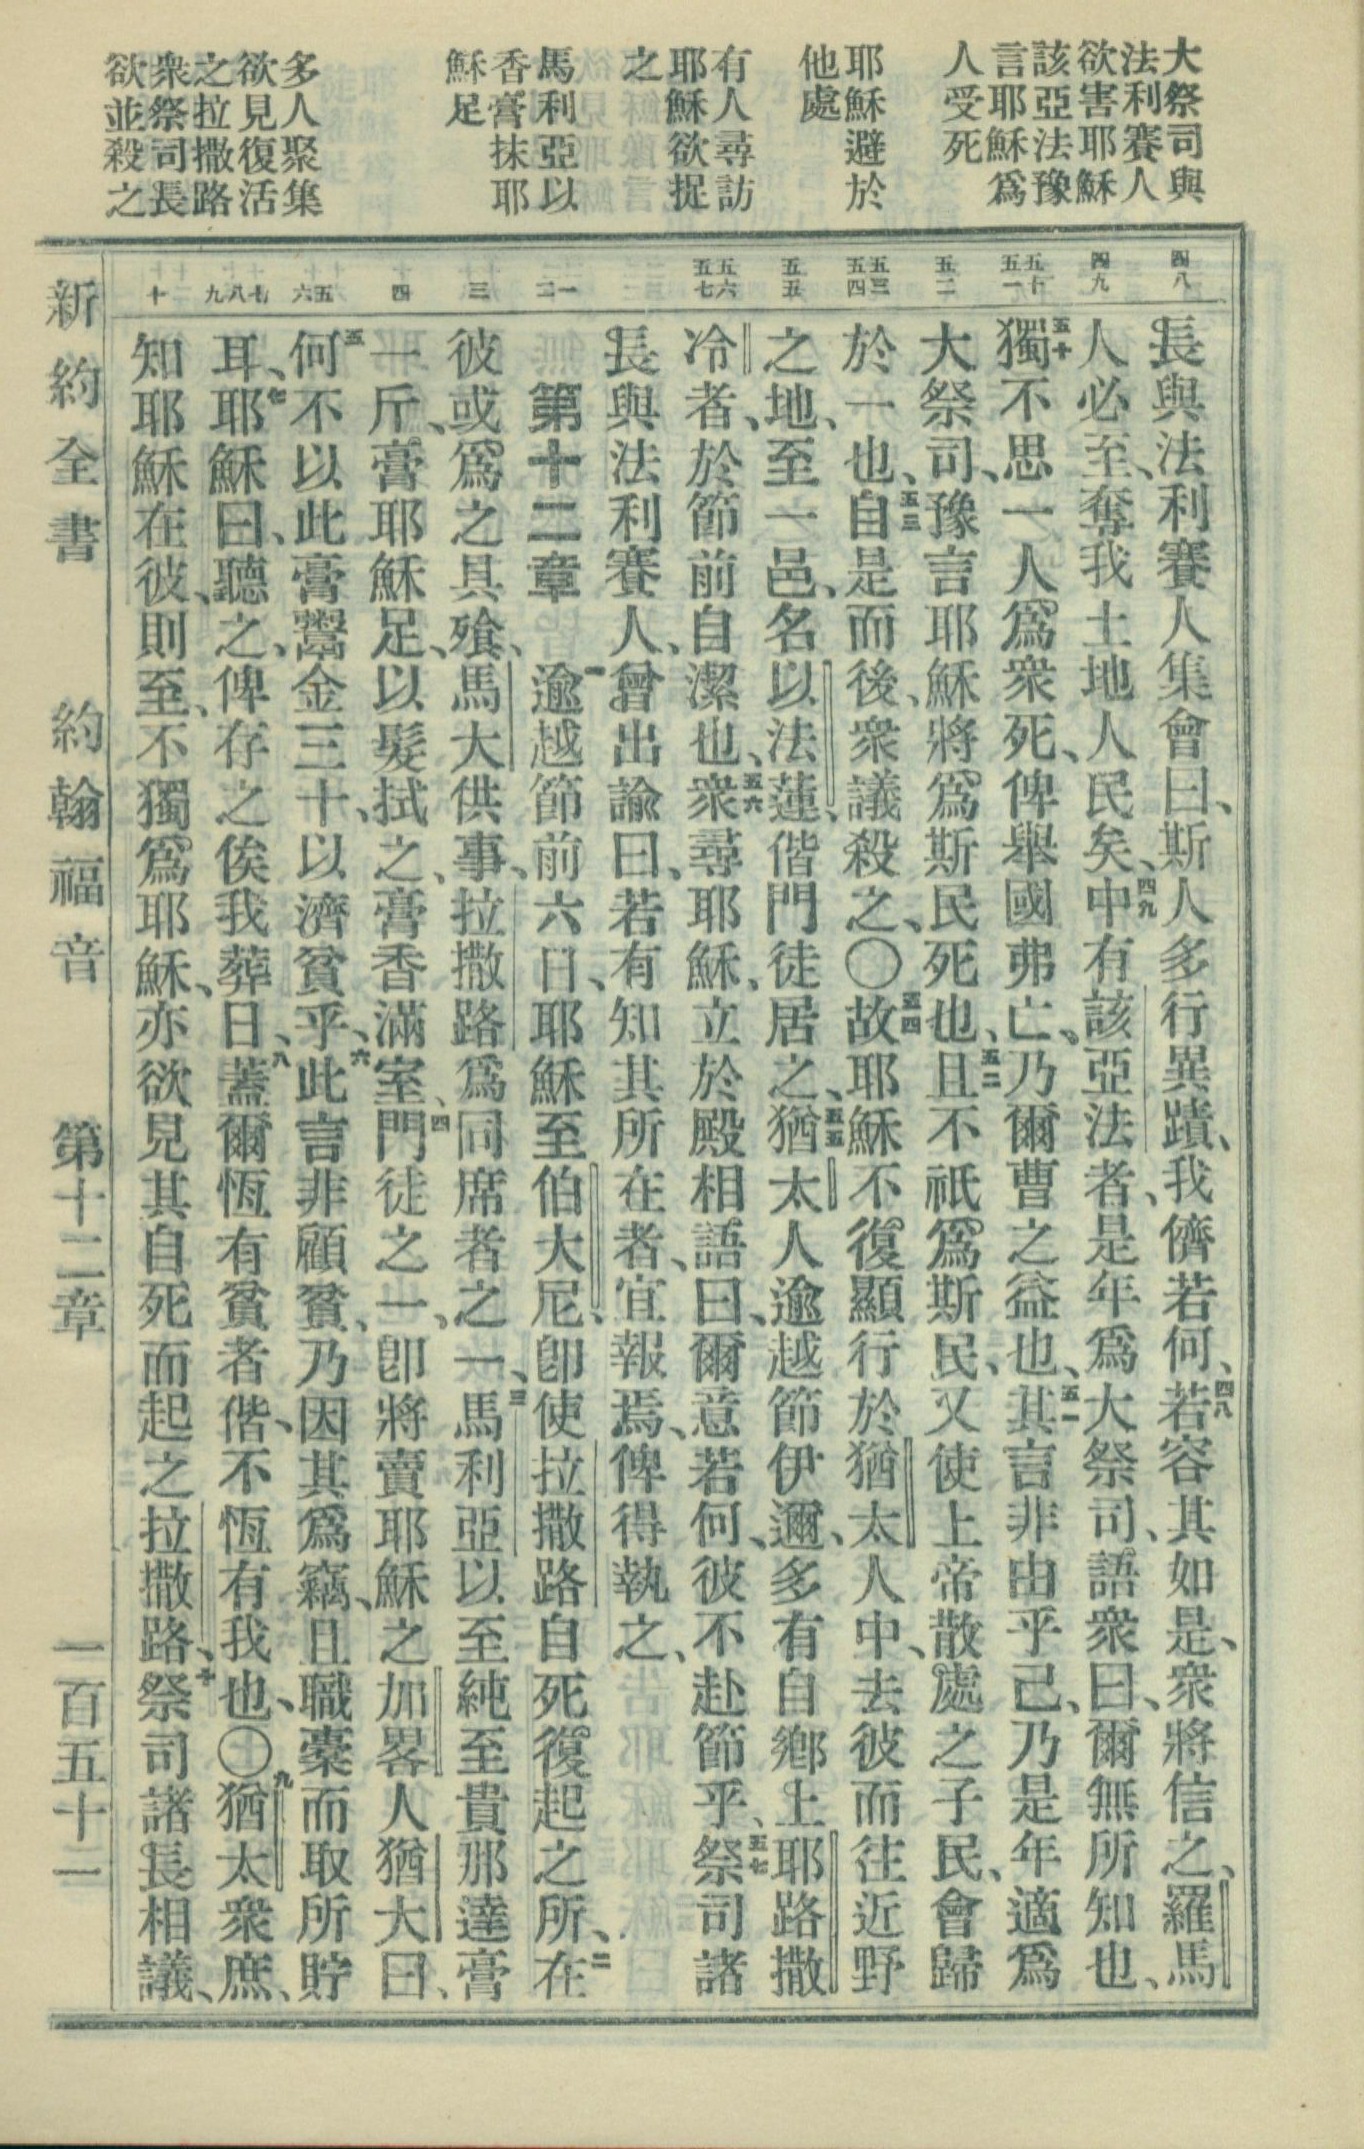 大祭司與
法利賽人
欲害耶穌
該亞法豫
言耶穌爲
人受死
耶穌避於
他處
有人尋訪
耶穌欲捉
之
馬利亞以
香膏抹耶
穌足
多人聚集
欲見復活
之拉撒路
衆祭司長
欲並殺之
四八
四九
五十
五一
五二
五三
五四
五五
五六
五七
一
二
三
四
五
六
七
八
九
十
長與法利賽人集會曰、斯人多行異蹟、我儕若何、四八若容其如是、衆將信之、羅馬
人必至、奪我土地人民矣、四九中有該亞法者、是年爲大祭司、語衆曰、爾無所知也、
五十獨不思一人爲衆死、俾舉國弗亡、乃爾曹之益也、五一其言非由乎己、乃是年適爲
大祭司、豫言耶穌將爲斯民死也、五二且不祇爲斯民、又使上帝散處之子民、會歸
於一也、五三自是而後、衆議殺之、〇五四故耶穌不復顯行於猶太人中、去彼而往近野
之地、至一邑、名以法蓮、偕門徒居之、五五猶太人逾越節伊邇、多有自鄉上耶路撒
冷者、於節前自潔也、五六衆尋耶穌、立於殿相語曰、爾意若何、彼不赴節乎、五七祭司諸
長與法利賽人、曾出諭曰、若有知其所在者、宜報焉、俾得執之、
第十二章 一逾越節前六日、耶穌至伯大尼、卽使拉撒路自死復起之所、二在
彼或爲之具飱、馬大供事、拉撒路爲同席者之一、三馬利亞以至純至貴那達膏
一斤、膏耶穌足、以髮拭之、膏香滿室、四門徒之一、卽將賣耶穌之加畧人猶大曰、
五何不以此膏鬻金三十、以濟貧乎、六此言非顧貧、乃因其爲竊、且職橐而取所貯
耳、七耶穌曰、聽之、俾存之俟我葬日、八蓋爾恆有貧者偕、不恆有我也、〇九猶太衆庶、
知耶穌在彼、則至、不獨爲耶穌、亦欲見其自死而起之拉撒路、十祭司諸長相議、
新約全書 約翰福音 第十二章 一百五十二